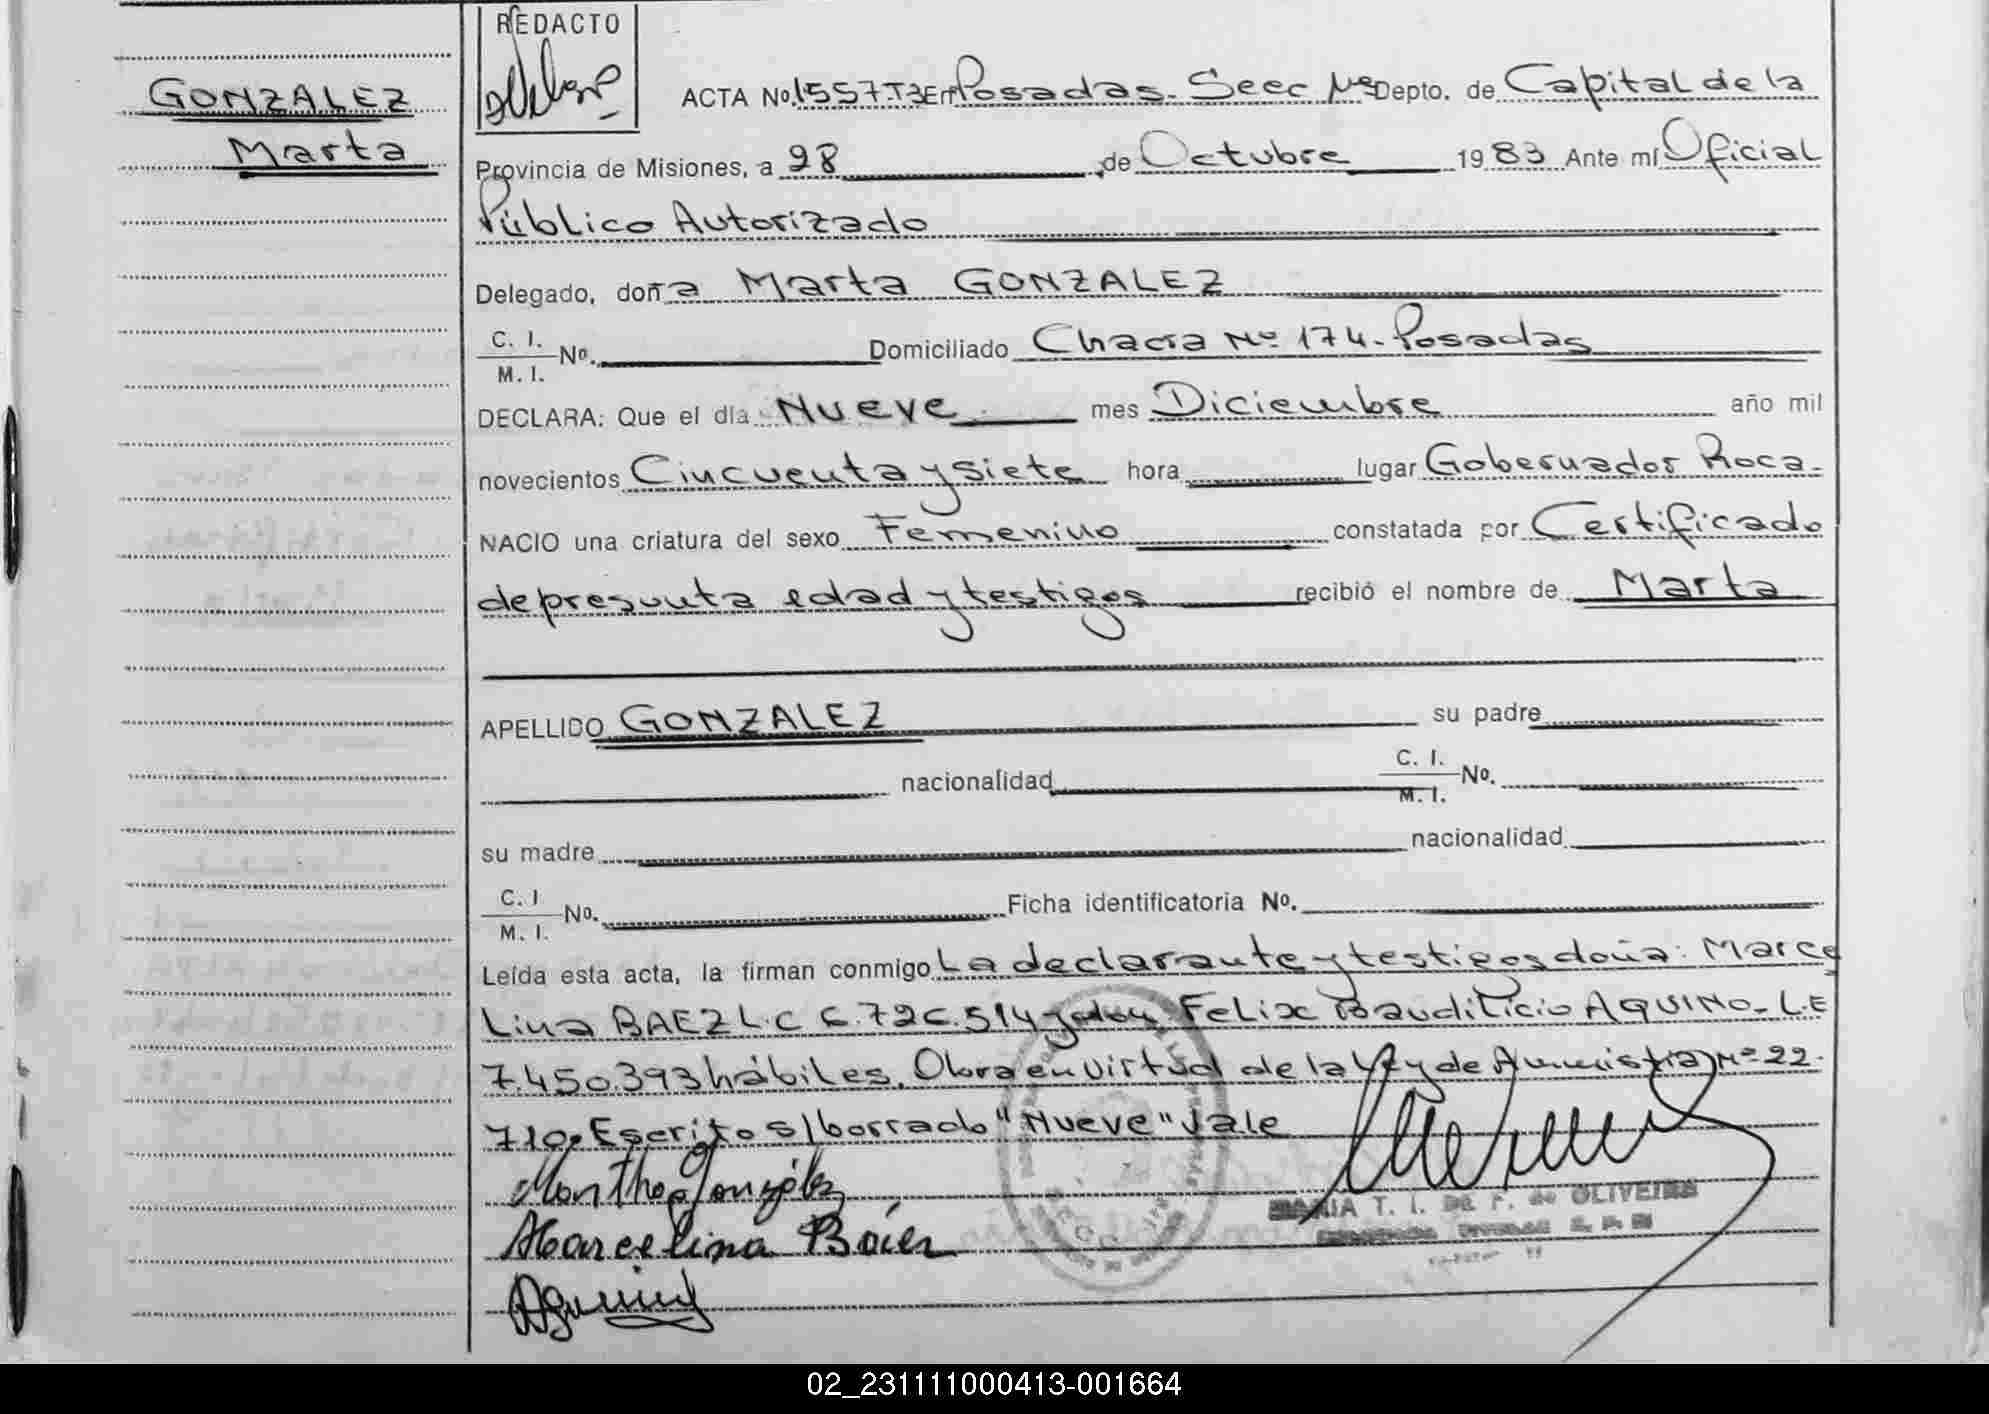 REDACTO
GONZALEZ
Marta
ACTA No. 1557-T3 En Posadas. Secc Nº Depto. de Capital de la
Provincia de Misiones, a 28 de Octubre 1983 Ante mí Oficial
Público Autorizado
Delegado, doña Marta GONZALEZ
C. I.
M. I. No. Domiciliado Chacra Nº 174. Posadas
DECLARA: Que el día Nueve mes Diciembre año mil
novecientos Cincuenta y siete hora lugar Gobernador Roca.
NACIO una criatura del sexo Femenino constatada por Certificado
de presunta edad y testigos recibió el nombre de Marta
APELLIDO GONZALEZ su padre
nacionalidad C. I.
M. I. No.
su madre nacionalidad
C. I
M. I. No. Ficha identificatoria No.
Leída esta acta, la firman conmigo La declarante y testigos doña: Marce
Lina BAEZ L.C 6.726.514 y don Felix Baudilicio AQUINO_ L.E
7.450.393 hábiles. Obra en virtud de la Ley de Amnistia Nº 22.
710. Escrito s/borrado "Nueve" Vale
Martha Gonzáles
Marcelina Báez
Aquino
MARIA T. I. DE F. de OLIVEIRA
02_231111000413-001664